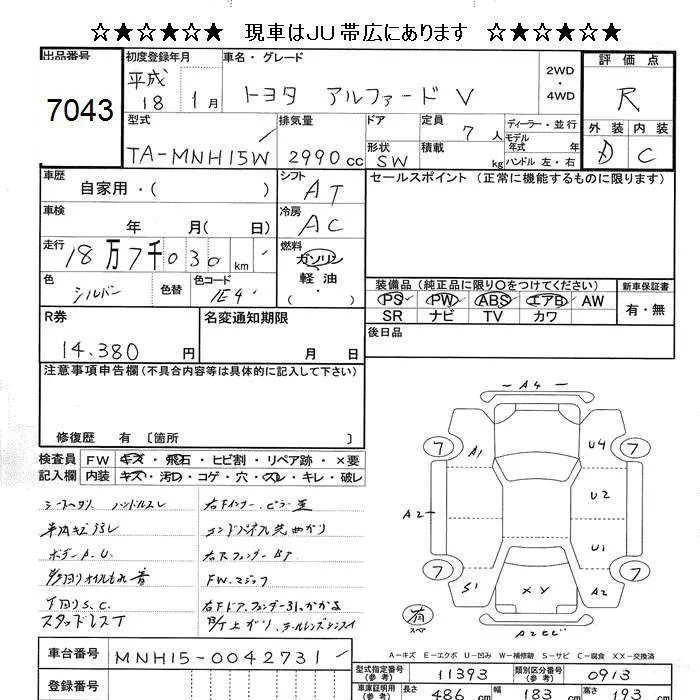 ☆★☆★☆★ 現車はJU帯広にあります ☆★☆★☆★
出品番号
7043
初度登録年月
平成18 1月
車名・グレード
トヨタ アルファード V
2WD・4WD
評価点
R
外装 内装
D C
型式
TA-MNH15W
排気量
2990cc
ドア
形状
SW
定員
7人
積載
kg
ディーラー・並行
モデル年式 年
ハンドル 左・右
車歴
自家用・( )
シフト
AT
セールスポイント (正常に機能するものに限ります)
車検
年 月( 日)
冷房
AC
走行
18万7千030km
燃料
ガソリン・軽油・( )
色
シルバー
色替
色コード
1E4
装備品(純正品に限り○をつけてください)
PS PW ABS エアB AW
SR ナビ TV カワ
新車保証書
有・無
R券
14.380円
名変通知期限
月 日
後日品
注意事項申告欄(不具合内容等は具体的に記入して下さい)
修復歴 有 〔箇所 〕
検査員記入欄
FW キズ・飛石・ヒビ割・リペア跡・×要
内装 キズ・汚レ・コゲ・穴・スレ・キレ・破レ
ハンドルスレ
ボデーA.U.
下回りS.C.
スタッドレスT
FW.マジック
A4
7 A1 U4 7
A2 U2
U1
7 S1 XY A2 7
有
スペア
A－キズ E－エクボ U－凹み W－補修跡 S－サビ C－腐食 XX－交換済
車台番号
MNH15-0042731
登録番号
型式指定番号(参考)
11393
類別区分番号(参考)
0913
車庫証明用(参考)
長さ 486 cm
幅 183 cm
高さ 193 cm